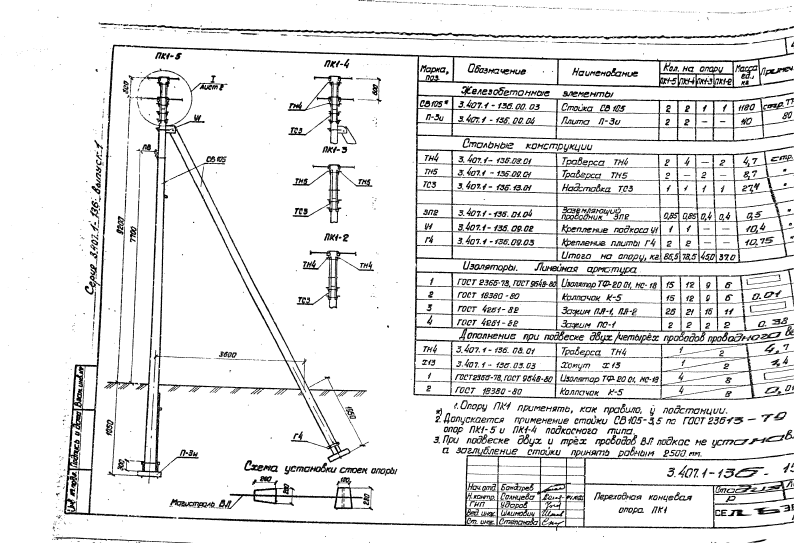 Серия 3.407.1-136 Выпуск 1
ПК1-5
I
Лист 2
У1
СВ105
8200
7700
3600
Г4
П-3и
ПК1-4
ТН4
ТС3
ПК1-3
ТН5 ТН5
ТС3
ПК1-2
ТН4 ТН4
ТС3
Схема установки стоек опоры
Магистраль ВЛ
Марка, поз. Обозначение Наименование Кол. на опору Масса ед., кг Примеч
ПК1-5 ПК1-4 ПК1-3 ПК1-2
Железобетонные элементы
СВ105* 3.407.1-136.00.03 Стойка СВ105 2 2 1 1 1180
П-3и 3.407.1-136.00.04 Плита П-3и 2 2 – – 110
Стальные конструкции
ТН4 3.407.1-136.08.01 Траверса ТН4 2 4 – 2 4,7
ТН5 3.407.1-136.09.01 Траверса ТН5 2 – 2 – 8,7
ТС3 3.407.1-136.13.01 Надставка ТС3 1 1 1 1 27,4
ЗП2 3.407.1-136.01.04 Заземляющий проводник ЗП2 0,85 0,85 0,4 0,4 0,5
У1 3.407.1-136.09.02 Крепление подкоса У1 1 1 – – 10,4
Г4 3.407.1-136.09.03 Крепление плиты Г4 2 2 – – 10,75
Итого на опору, кг 86,5 78,5 45,0 37,0
Изоляторы. Линейная арматура
1 ГОСТ 2366-78, ГОСТ 9548-80 Изолятор ТФ-20 01, НС-18 15 12 9 6
2 ГОСТ 18380-80 Колпачок К-5 15 12 9 6 0.01
3 ГОСТ 4261-82 Зажим ПА-1, ПА-2 25 21 15 11
4 ГОСТ 4261-82 Зажим ПС-1 2 2 2 2 0.38
Дополнение при подвеске двух/четырёх проводов проводного
ТН4 3.407.1-136.08.01 Траверса ТН4 1 2 4,7
Х13 3.407.1-136.03.03 Хомут Х13 1 2
1 ГОСТ 2366-78, ГОСТ 9548-80 Изолятор ТФ-20 01, НС-18 4 8
2 ГОСТ 18380-80 Колпачок К-5 4 8
1. Опору ПК1 применять, как правило, у подстанции.
*) 2. Допускается применение стойки СВ105-3,5 по ГОСТ 23613-79
опор ПК1-5 и ПК1-4 подкосного типа.
3. При подвеске двух и трёх проводов ВЛ подкос не
а заглубление стойки принять равным 2500 мм.
3.407.1-136.
Нач.отд. Бондарев
Н.контр. Солнцева
ГНП Ударов
Вед.инж. Шлинович
Ст. инж. Степанова
Переходная концевая
опора ПК1
Р